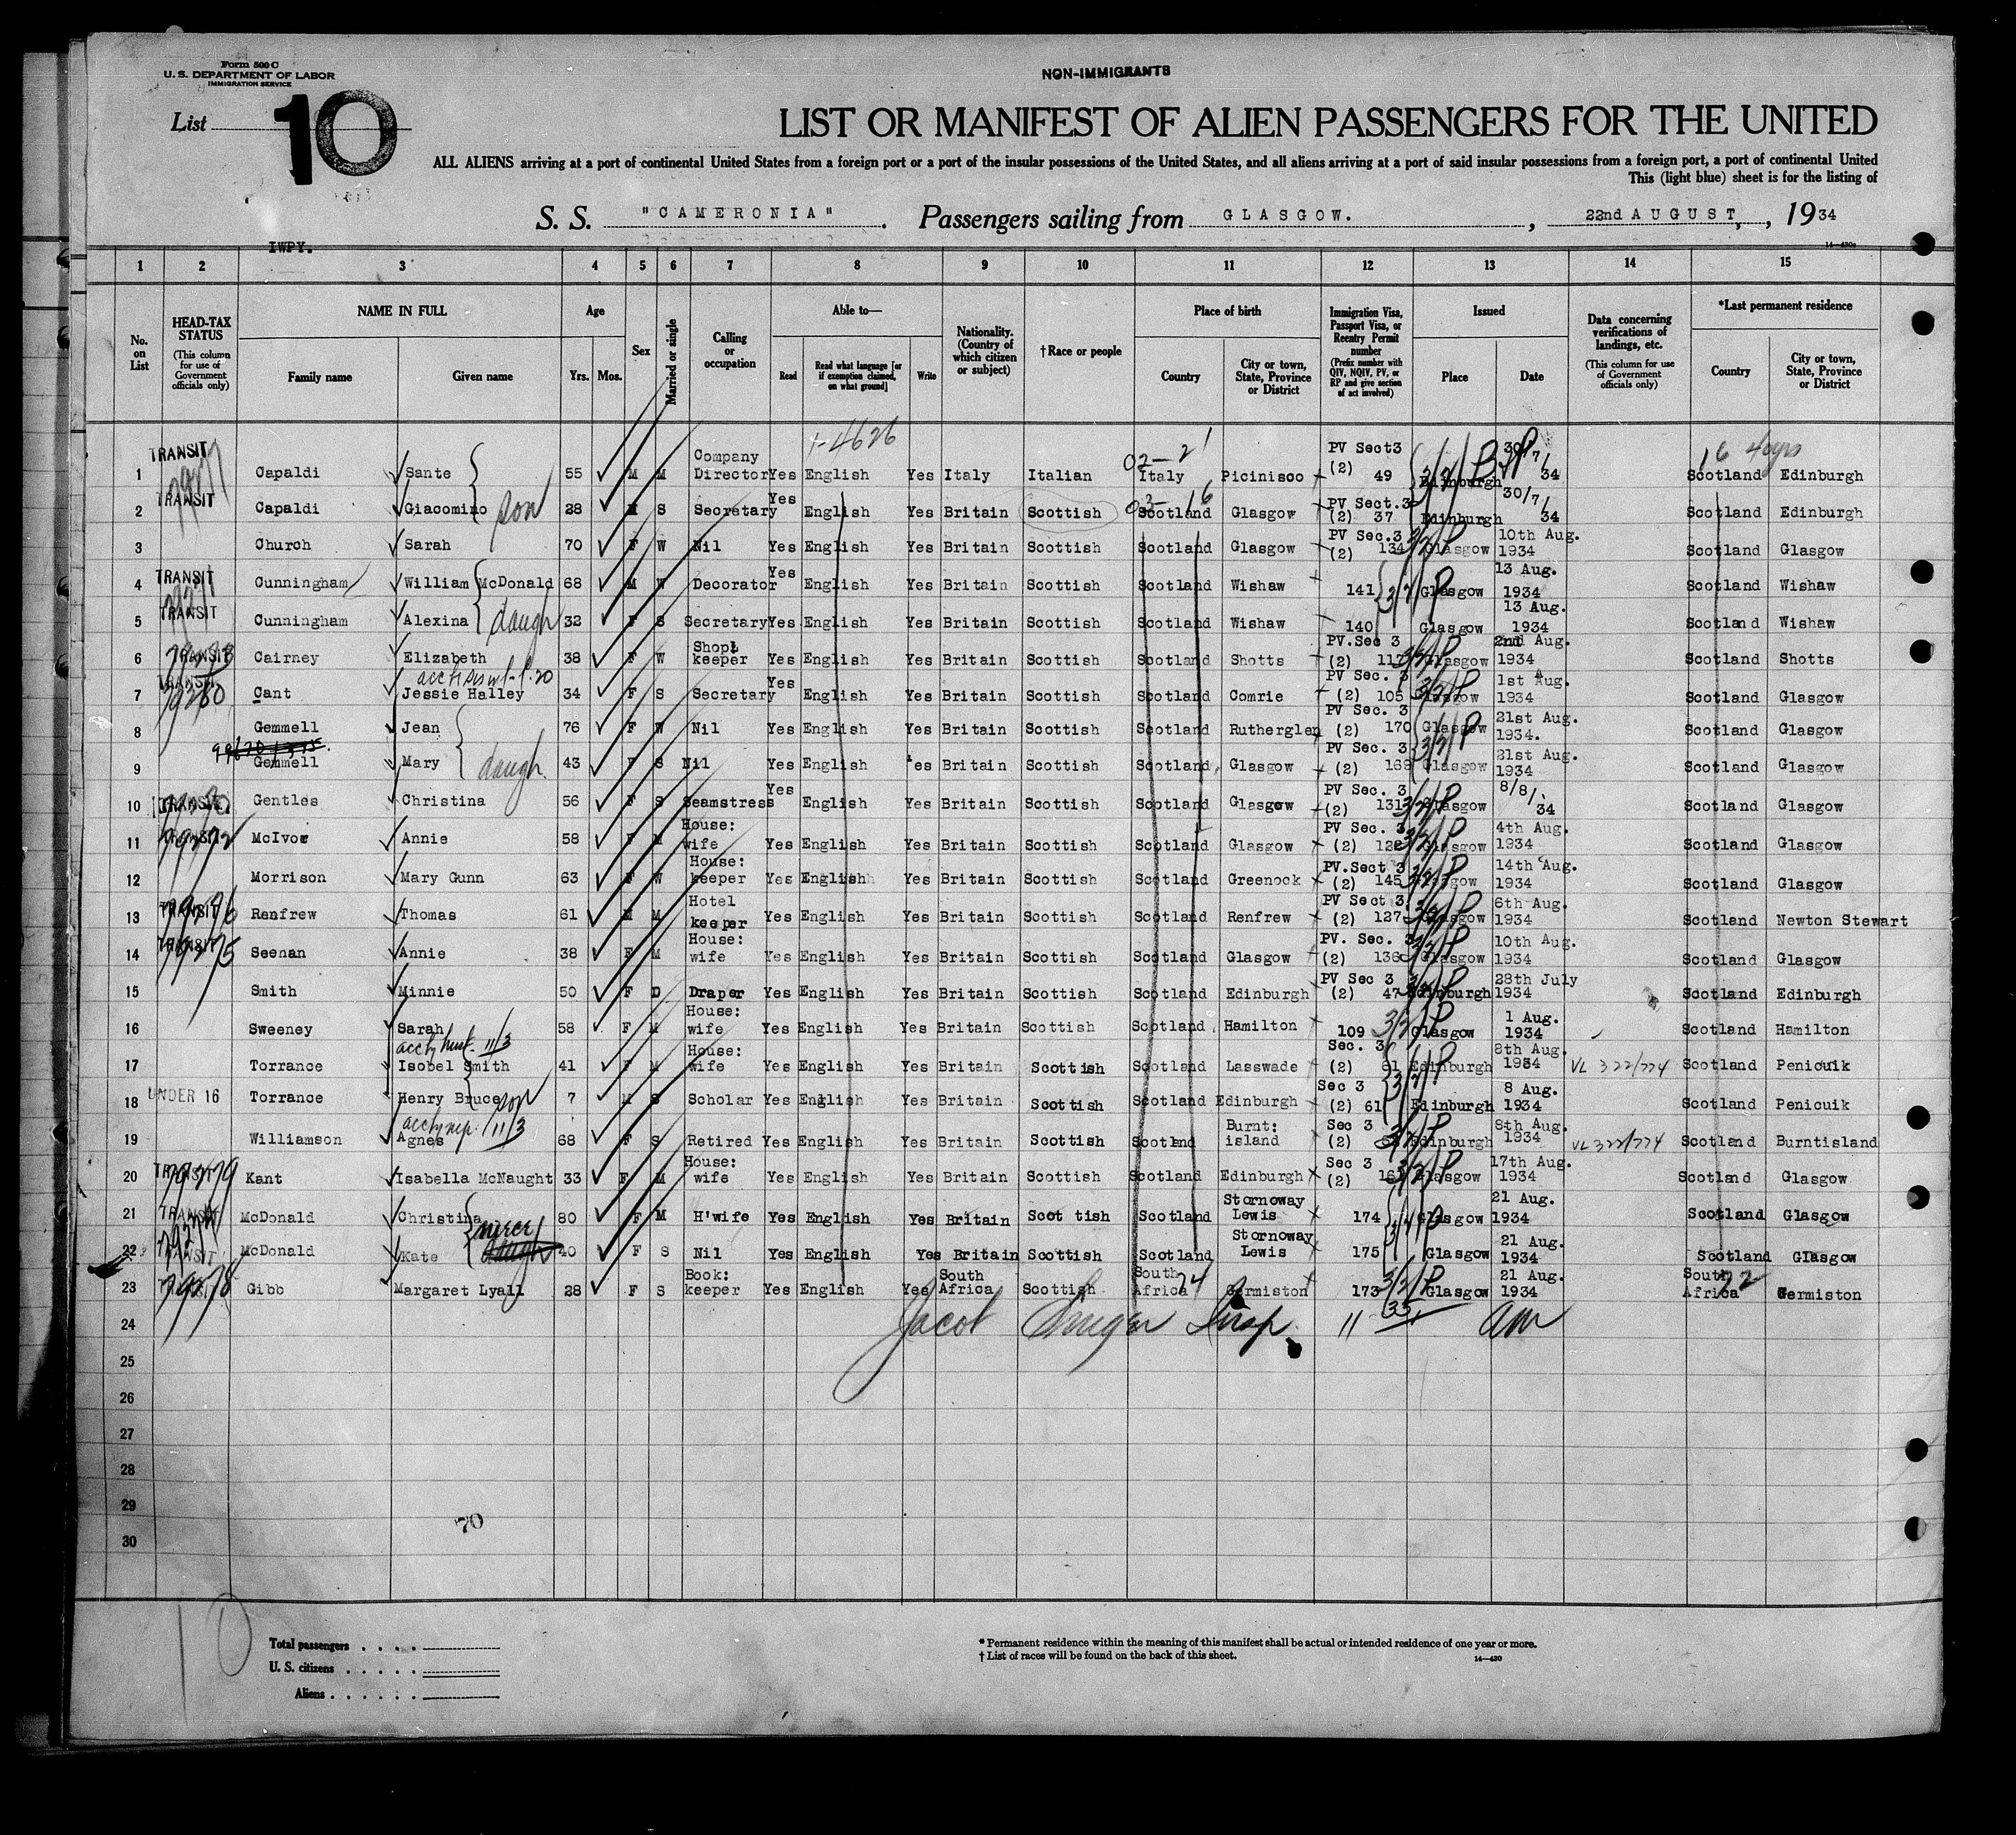 Form 500 C
U. S. DEPARTMENT OF LABOR
IMMIGRATION SERVICE
NON-IMMIGRANTS
List 10
LIST OR MANIFEST OF ALIEN PASSENGERS FOR THE UNITED
ALL ALIENS arriving at a port of continental United States from a foreign port or a port of the insular possessions of the United States, and all aliens arriving at a port of said insular possessions from a foreign port, a port of continental United
This (light blue) sheet is for the listing of
S. S. "CAMERONIA". Passengers sailing from GLASGOW. , 22nd AUGUST, , 1934
14—430c
IWPY.
1 2 3 4 5 6 7 8 9 10 11 12 13 14 15
No. on List
HEAD-TAX STATUS (This column for use of Government officials only)
NAME IN FULL Family name Given name
Age Yrs. Mos.
Sex
Married or single
Calling or occupation
Able to— Read Read what language [or if exemption claimed, on what ground] Write
Nationality. (Country of which citizen or subject)
†Race or people
Place of birth Country City or town, State, Province or District
Immigration Visa, Passport Visa, or Reentry Permit number (Prefix number with QIV, NQIV, PV, or RP and give section of act involved)
Issued Place Date
Data concerning verifications of landings, etc. (This column for use of Government officials only)
*Last permanent residence Country City or town, State, Province or District
1-4626
1 TRANSIT Capaldi Sante 55 M M Company Director Yes English Yes Italy Italian Italy Picinisco PV Sect3 (2) 49 Edinburgh 30/7/34 Scotland Edinburgh
2 TRANSIT Capaldi Giacomino son 28 M S Secretary Yes English Yes Britain Scottish Scotland Glasgow PV Sect.3 (2) 37 Edinburgh 30/7/34 Scotland Edinburgh
3 Church Sarah 70 F W Nil Yes English Yes Britain Scottish Scotland Glasgow PV Sec.3 (2) 134 Glasgow 10th Aug. 1934 Scotland Glasgow
4 TRANSIT Cunningham William McDonald 68 M W Decorator Yes English Yes Britain Scottish Scotland Wishaw 141 Glasgow 13 Aug. 1934 Scotland Wishaw
5 TRANSIT Cunningham Alexina daugh 32 F S Secretary Yes English Yes Britain Scottish Scotland Wishaw 140 Glasgow 13 Aug. 1934 Scotland Wishaw
6 TRANSIT Cairney Elizabeth 38 F W Shop: keeper Yes English Yes Britain Scottish Scotland Shotts PV.Sec 3 (2) 117 Glasgow 2nd Aug. 1934 Scotland Shotts
7 TRANSIT 79280 Cant Jessie Halley 34 F S Secretary Yes English Yes Britain Scottish Scotland Comrie PV Sec. 3 (2) 105 Glasgow 1st Aug. 1934 Scotland Glasgow
8 Gemmell Jean 76 F W Nil Yes English Yes Britain Scottish Scotland Rutherglen PV Sec. 3 (2) 170 Glasgow 21st Aug. 1934. Scotland Glasgow
9 Gemmell Mary daugh. 43 F S Nil Yes English Yes Britain Scottish Scotland Glasgow PV Sec. 3 (2) 168 Glasgow 21st Aug. 1934 Scotland Glasgow
10 TRANSIT Gentles Christina 56 F S Seamstress Yes English Yes Britain Scottish Scotland Glasgow PV Sec. 3 (2) 131 Glasgow 8/8/34 Scotland Glasgow
11 TRANSIT 79272 McIvor Annie 58 F M House: wife Yes English Yes Britain Scottish Scotland Glasgow PV Sec. 3 (2) Glasgow 4th Aug. 1934 Scotland Glasgow
12 Morrison Mary Gunn 63 F W House: keeper Yes English Yes Britain Scottish Scotland Greenock PV.Sect 3 (2) 145 Glasgow 14th Aug. 1934 Scotland Glasgow
13 TRANSIT 79276 Renfrew Thomas 61 M M Hotel keeper Yes English Yes Britain Scottish Scotland Renfrew PV Sect 3 (2) 127 Glasgow 6th Aug. 1934 Scotland Newton Stewart
14 TRANSIT 79275 Seenan Annie 38 F M House: wife Yes English Yes Britain Scottish Scotland Glasgow PV. Sec. 3 (2) 136 Glasgow 10th Aug. 1934 Scotland Glasgow
15 Smith Minnie 50 F D Draper Yes English Yes Britain Scottish Scotland Edinburgh PV Sec 3 (2) 47 Edinburgh 28th July 1934 Scotland Edinburgh
16 Sweeney Sarah 58 F M House: wife Yes English Yes Britain Scottish Scotland Hamilton 109 Glasgow 1 Aug. 1934 Scotland Hamilton
17 Torrance Isobel Smith 41 F M House: wife Yes English Yes Britain Scottish Scotland Lasswade Sec. 3 (2) 61 Edinburgh 8th Aug. 1934 VL 322/774 Scotland Penicuik
18 UNDER 16 Torrance Henry Bruce son 7 M S Scholar Yes English Yes Britain Scottish Scotland Edinburgh Sec 3 (2) 61 Edinburgh 8 Aug. 1934 Scotland Penicuik
19 Williamson Agnes 68 F S Retired Yes English Yes Britain Scottish Scotland Burnt: island Sec 3 (2) Edinburgh 8th Aug. 1934 VL 322/774 Scotland Burntisland
20 TRANSIT 79279 Kant Isabella McNaught 33 F M House: wife Yes English Yes Britain Scottish Scotland Edinburgh Sec 3 (2) Glasgow 17th Aug. 1934 Scotland Glasgow
21 TRANSIT McDonald Christina 80 F M H'wife Yes English Yes Britain Scottish Scotland Stornoway Lewis 174 Glasgow 21 Aug. 1934 Scotland Glasgow
22 TRANSIT McDonald Kate niece 40 F S Nil Yes English Yes Britain Scottish Scotland Stornoway Lewis 175 Glasgow 21 Aug. 1934 Scotland Glasgow
23 79278 Gibb Margaret Lyall 28 F S Book: keeper Yes English Yes South Africa Scottish South Africa Germiston 173 Glasgow 21 Aug. 1934 South Africa Germiston
24 Jacob Insp.
25
26
27
28
29
30
70
10
Total passengers . . . .
U. S. citizens . . . . .
Aliens . . . . . .
* Permanent residence within the meaning of this manifest shall be actual or intended residence of one year or more.
† List of races will be found on the back of this sheet.
14—430